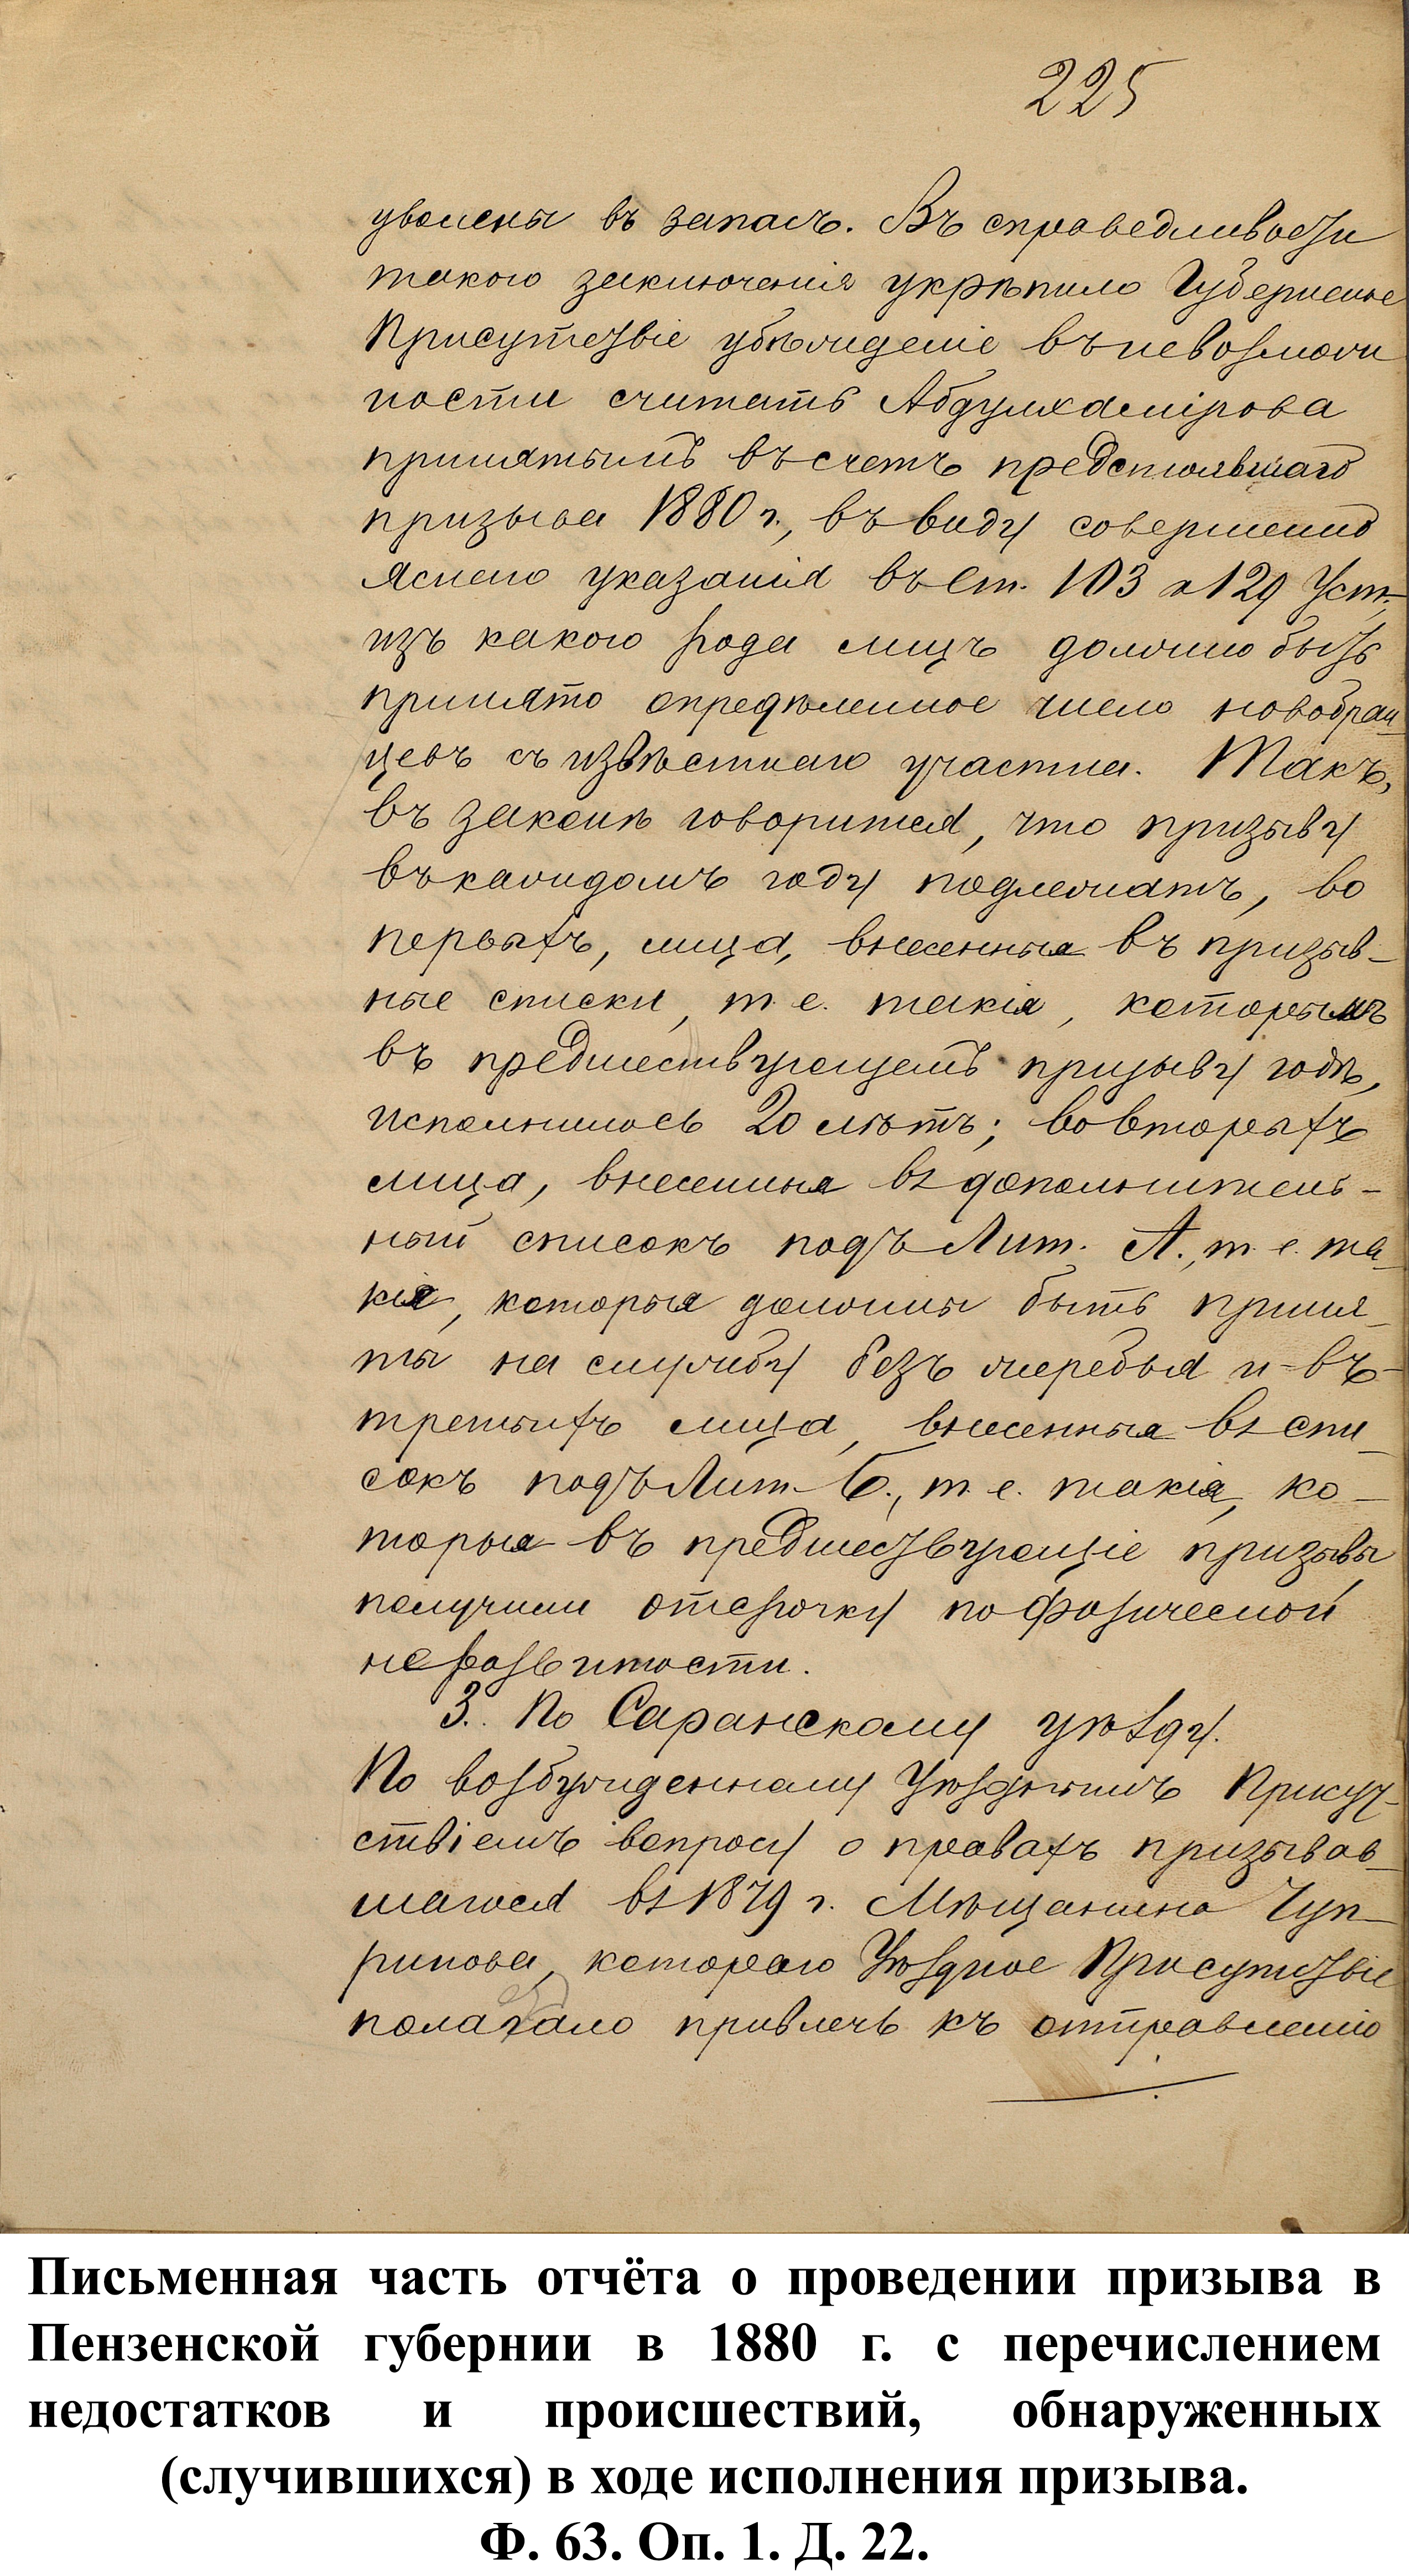 225
уволены въ запасъ. Въ справедливости
такого заключенія укрѣпило Губернское
Присутствіе убѣжденіе въ невозмож
ности считать Абдулхамірова
принятымъ въ счетъ предстоявшаго
призыва 1880 г., въ виду совершенно
яснаго указанія въ ст. 103 и 129 Уст.,
изъ какого рода лицъ должно быть
принято опредѣленное число новобран
цевъ съ извѣстнаго участка. Такъ,
въ законѣ говорится, что призыву
въ каждомъ году подлежатъ, во
первыхъ, лица, внесенныя въ призыв-
ные списки, т. е. такія, которымъ
въ предшествующемъ призыву годѣ,
исполнилось 20 лѣтъ; во вторыхъ
лица, внесенныя въ дополнитель-
ный списокъ подъ Лит. А., т. е. та-
кія, которыя должны быть приня-
ты на службу безъ жеребья и въ-
третьихъ лица, внесенныя въ спи-
сокъ подъ Лит. Б., т. е. такія, ко-
торыя въ предшествующіе призывы
получили отсрочку по физической
неразвитости.
3. По Саранскому уѣзду.
По возбужденному Уѣзднымъ Присут-
ствіемъ вопросу о правахъ призывав-
шагося въ 1879 г. Мѣщанина Чуп-
рунова, котораго Уѣздное Присутствіе
полагало привлечь къ отправленію
Письменная часть отчёта о проведении призыва в
Пензенской губернии в 1880 г. с перечислением
недостатков и происшествий, обнаруженных
(случившихся) в ходе исполнения призыва.
Ф. 63. Оп. 1. Д. 22.